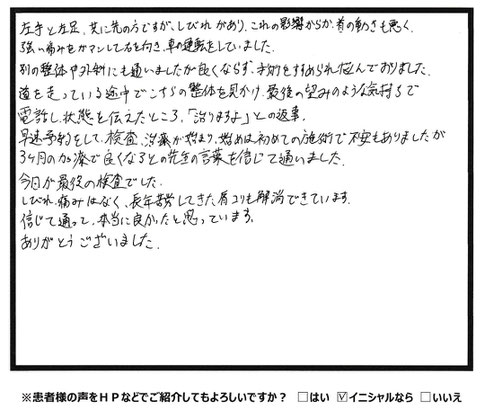 左手と左足、共に先の方ですが、しびれがあり、これの影響からか、首の動きも悪く、
強い痛みをガマンして右を向き、車の運転をしていました。
別の整体や外科にも通いましたが良くならず、手術をすすめられ悩んでおりました。
道を走っている途中でこちらの整体を見かけ、最後の望みのような気持ちで
電話し、状態を伝えたところ、「治りますよ」との返事。
早速予約をして、検査、治療が始まり、始めは初めての施術で不安もありましたが
3ヶ月の加療で良くなるとの先生の言葉を信じて通いました。
今日が最後の検査でした。
しびれ、痛みはなく、長年苦労してきた肩コリも解消できています。
信じて通って、本当に良かったと思っています。
ありがとうございました。
※患者様の声をＨＰなどでご紹介してもよろしいですか？ □はい ☑イニシャルなら □いいえ